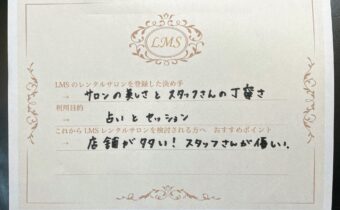 LMS
LMSのレンタルサロンを登録した決め手
→ サロンの美しさとスタッフさんの丁寧さ
利用目的
→ 占いとセッション
これからLMSレンタルサロンを検討される方へ おすすめポイント
→ 店舗が多い！スタッフさんが優しい。